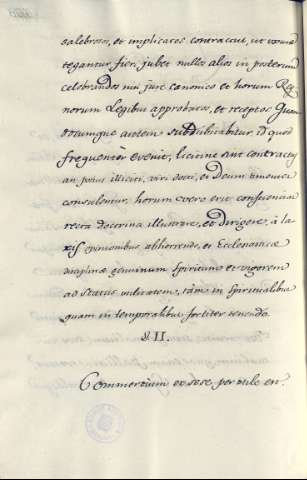 salebrosos, et implicatos contractus, ut tortu
tegantur fieri, jubet nullos alios in posterum
celebrandos nisi jure canonico et horum Reg
norum Legibus approbatos, et receptos Quan
documque autem subdubitabitur, id quod
frequenter evenit, licitine sint contractus
an potius illiciti, viri docti, et Deum timentes
consulantur, horum vero erit confusionem
recta doctrina illustrare, et dirigere, à la
xis opinionibus abhorrendo, et Eclesiasticæ
disciplinæ genuinum Spiritum et vigorem
ad status utilitatem, tàm in Spiritualibus
quam in temporalibus fortiter tenendo.
§ II.
Commercium ex sese per utile est